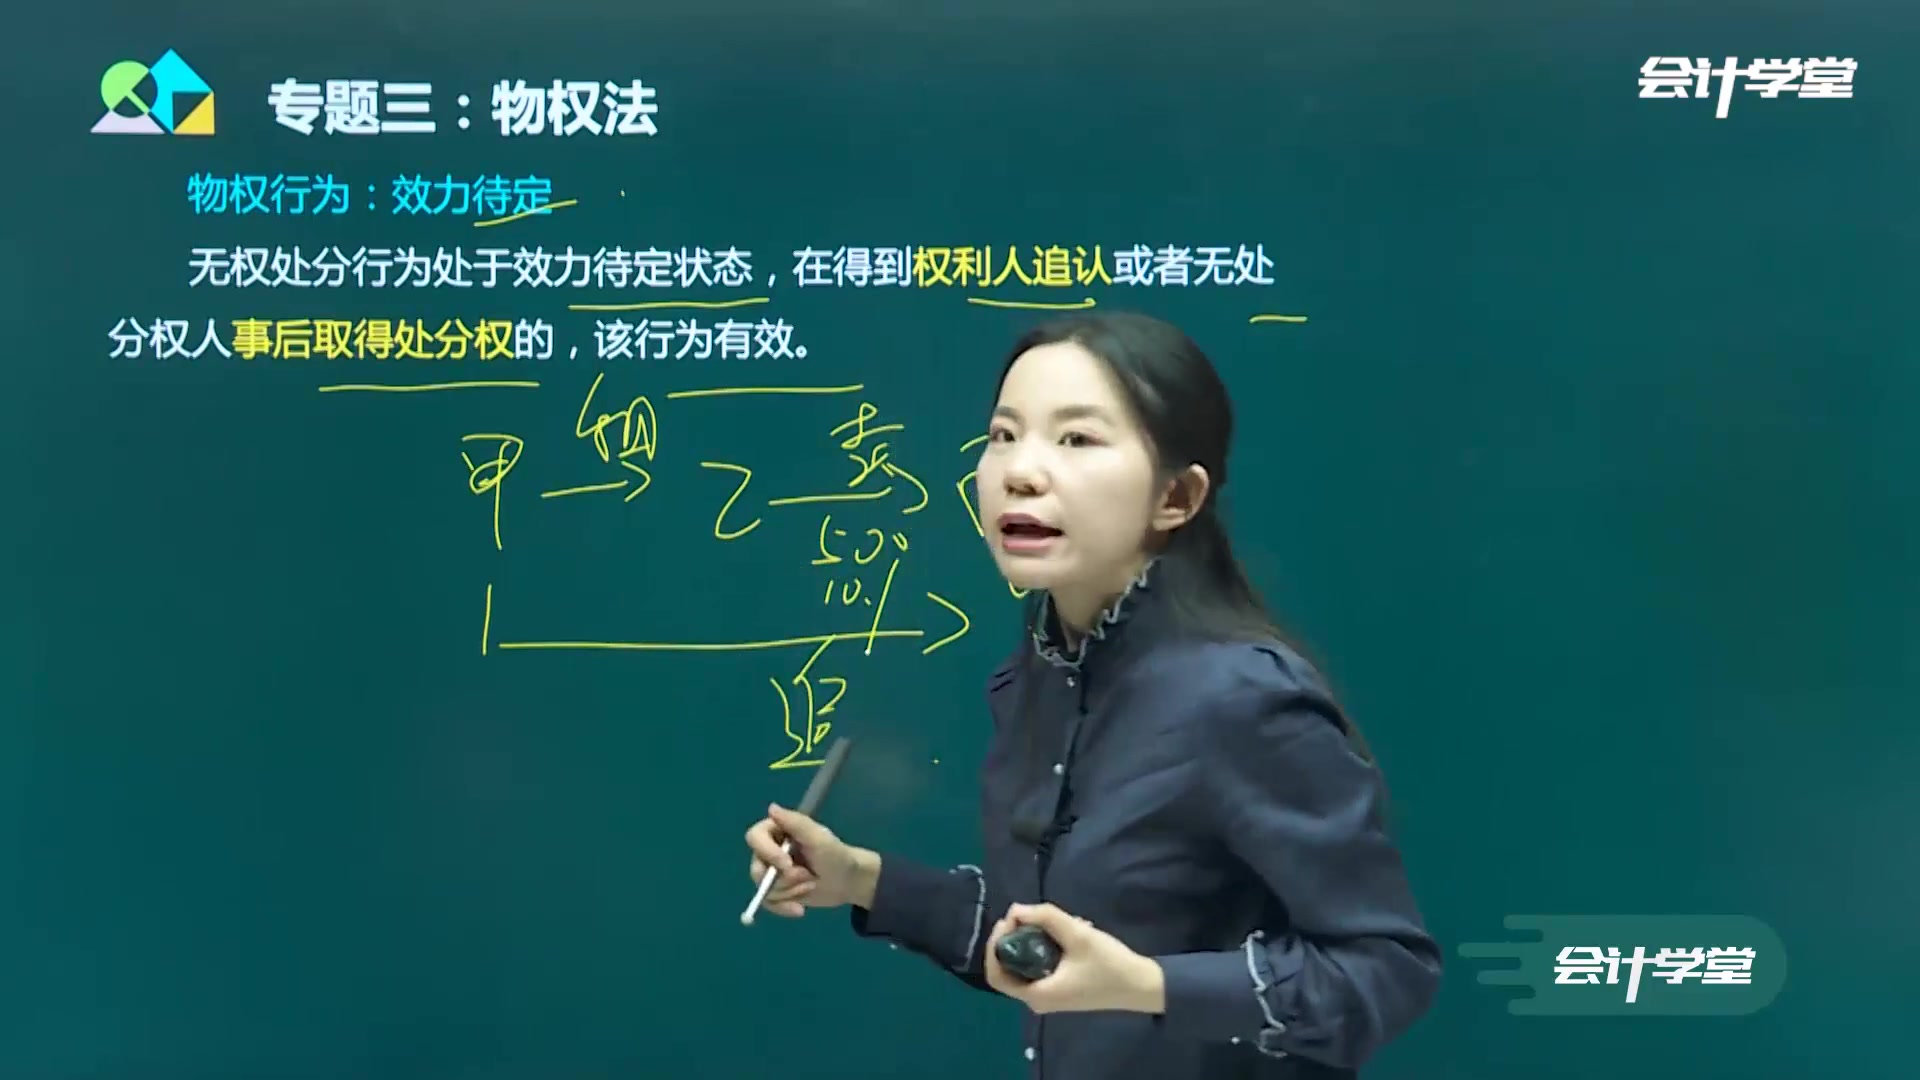 会计学堂
专题三：物权法
物权行为：效力待定
无权处分行为处于效力待定状态，在得到权利人追认或者无处
分权人事后取得处分权的，该行为有效。
甲 租 乙 卖
500
10%
追
会计学堂